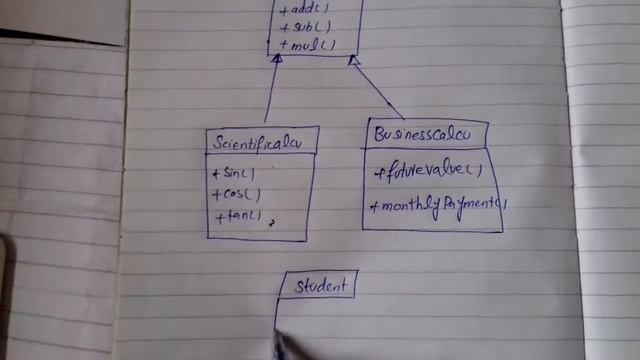 +add()
+sub()
+mul()
Scientificalcu
+sin()
+cos()
+tan()
Businesscalcu
+futurevalue()
+monthlyPayment()
Student